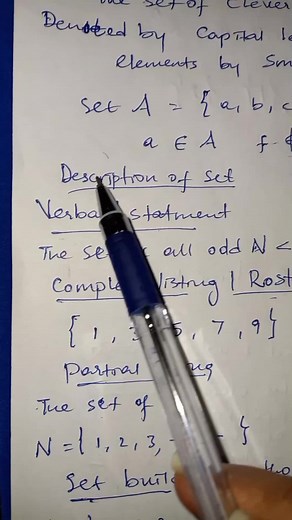 the set of Clever
Denoted by Capital le
elements by Sm
Set A = { a, b, c
a ∈ A f ∉
Description of set
Verbal statment
The set all odd N <
Comple listing | Rost
{ 1, 3, 5, 7, 9}
Partial
The set of
N = { 1, 2, 3, - - }
Set buil